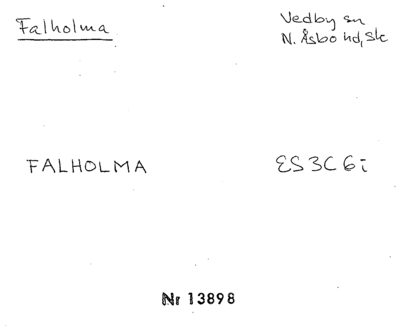 Falholma
Vedby sn
N. Åsbo hd, Sk
FALHOLMA
ES3C6i
Nr 13898